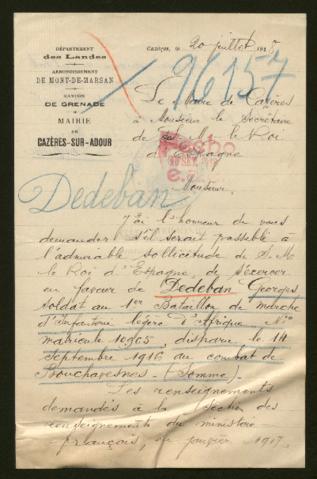 DÉPARTEMENT
des Landes
ARRONDISSEMENT
DE MONT-DE-MARSAN
CANTON
DE GRENADE
MAIRIE
DE
CAZÈRES-SUR-ADOUR
Cazères, le 20 juillet 191
96157
Le Maire de Cazères
à Monsieur le Secrétaire
de S. M. le Roi
d'Espagne
Dedeban
Monsieur,
J'ai l'honneur de vous
demander s'il serait possible à
l'admirable sollicitude de S. M.
le Roi d'Espagne, de s'exercer
en faveur de Dedeban Georges
soldat au 1er Bataillon de marche
d'Infanterie légère d'Afrique, No
matricule 10965, disparu le 14
septembre 1916 au combat de
Bouchavesnes. (Somme).
Les renseignements
demandés à la section des
renseignements du ministère
français, en janvier 1917.